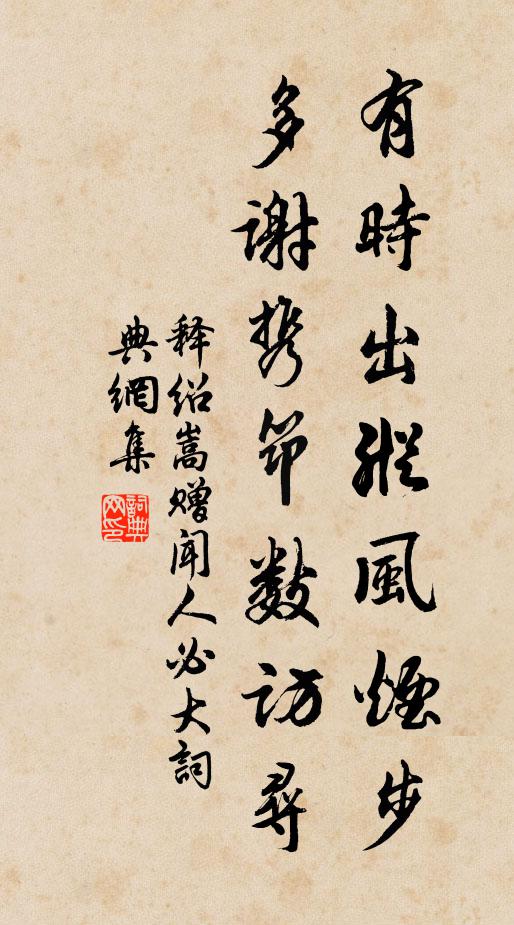 有時出縱風煙步
多謝携筇數訪尋
释紹嵩贈聞人必大詞
典網集
詞典網印